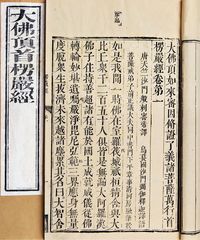 大佛頂首楞嚴經
大佛頂如來密因修證了義諸菩薩萬行首
楞嚴經卷第一
唐天竺沙門般剌密帝譯
烏萇國沙門彌伽釋迦譯語
如是我聞一時佛在室羅筏城祇桓精舍與大
比丘眾千二百五十人俱皆是無漏大阿羅漢
佛子住持善超諸有能於國土成就威儀從佛
轉輪妙堪遺囑嚴淨毘尼弘範三界應身無量
度脫眾生拔濟未來越諸塵累其名曰大智舍